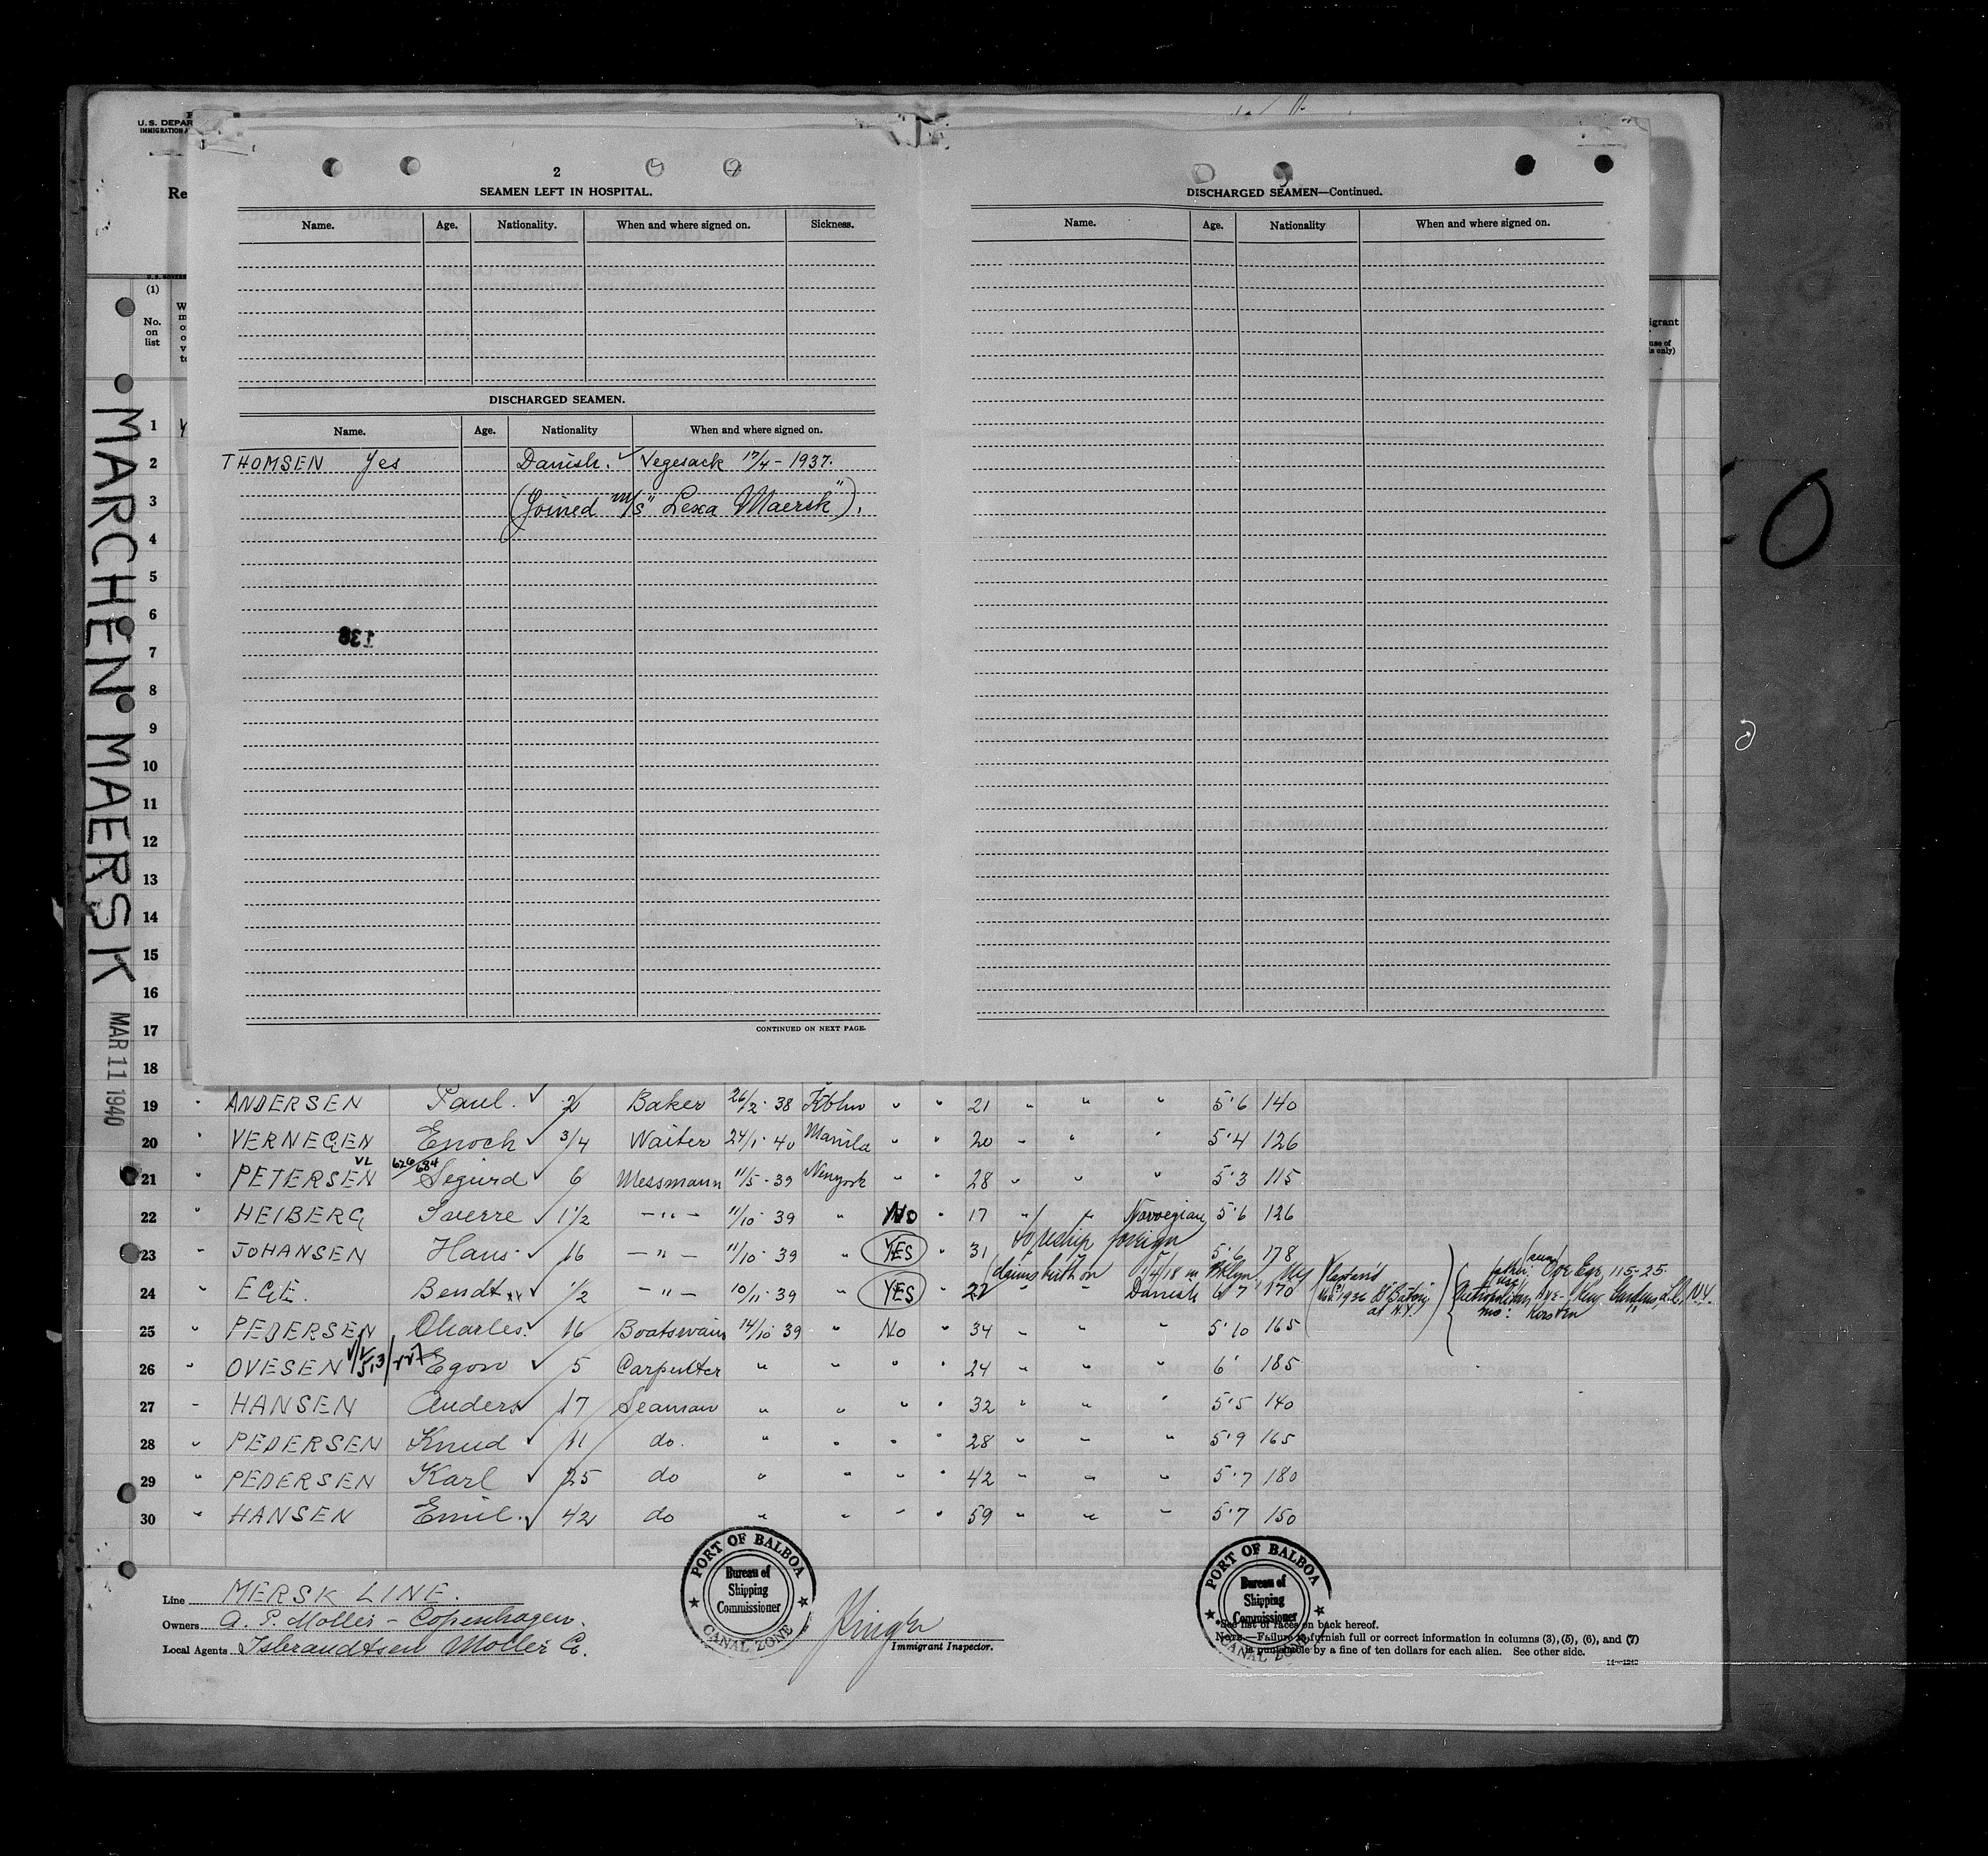 U.S. DEPAR
IMMIGRATION A
Re
2
SEAMEN LEFT IN HOSPITAL.
Name. Age. Nationality. When and where signed on. Sickness.
DISCHARGED SEAMEN.
Name. Age. Nationality When and where signed on.
THOMSEN Yes Danish. ✓ Vegesack 17/4 - 1937.
(Joined m/s "Lexa Maersk").
138
CONTINUED ON NEXT PAGE.
DISCHARGED SEAMEN—Continued.
Name. Age. Nationality When and where signed on.
(1)
No.
on
list
igrant
use of
is only)
MARCHEN MAERSK
MAR 11 1940
1
2
3
4
5
6
7
8
9
10
11
12
13
14
15
16
17
18
19 " ANDERSEN Paul. ✓ 2 Baker 26/2 - 38 Kbhn " " 21 " " " 5'6 140
20 " VERNEGEN Enoch ✓ 3/4 Waiter 24/1 - 40 Manila " " 20 " " " 5'4 126
21 " PETERSEN Segurd ✓ 6 Messmann 11/5 - 39 Newyork " " 28 " " " 5'3 115
22 " HEIBERG Sverre ✓ 1 1/2 — " — 11/10 - 39 " No " 17 " " Norvegian 5'6 126
to reship foreign
23 " JOHANSEN Hans ✓ 16 — " — 11/10 - 39 " YES " 31 5'6 178
(claims birth on
24 " EGE. Bendt 1/2 — " — 10/11 - 39 " YES " " " Danish 6'7 170
at N.Y.
25 " PEDERSEN Charles. 16 Boatswain 14/10 39 " No " 34 " " " 5'10 165
26 " OVESEN Egon ✓ 5 Carpenter " " " " 24 " " " 6' 185
27 " HANSEN Anders ✓ 17 Seaman " " " " 32 " " " 5'5 140
28 " PEDERSEN Knud ✓ 11 do. " " " " 28 " " " 5'9 165
29 " PEDERSEN Karl ✓ 25 do " " " " 42 " " " 5'7 180
30 " HANSEN Emil. ✓ 42 do " " " " 59 " " " 5'7 150
Line MERSK LINE.
Owners A. P. Moller - Copenhagen.
Local Agents Isbrandtsen Moller Co.
PORT OF BALBOA
Bureau of
Shipping
Commissioner
CANAL ZONE
Immigrant Inspector.
PORT OF BALBOA
Bureau of
Shipping
Commissioner
CANAL ZONE
*See list of races on back hereof.
NOTE.—Failure to furnish full or correct information in columns (3), (5), (6), and (7)
is punishable by a fine of ten dollars for each alien. See other side.